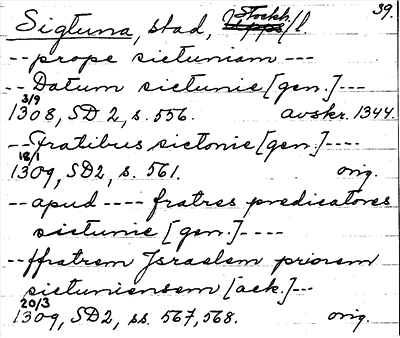 Sigtuna, stad, Stockh. l 39.
-- prope sictuniam ---
-- Datum sictunie [gen.] ---
3/9
1308, SD 2, s. 556. avskr. 1344.
-- Fratibus sictonie [gen.] ----
18/1
1309, SD2, s. 561. orig.
-- apud ---- fratres predicatores
sictunie [gen.] ----
-- ffratrem Israelem priorem
sictuniensem [ack.] --
20/3
1309, SD2, ss. 567, 568. orig.